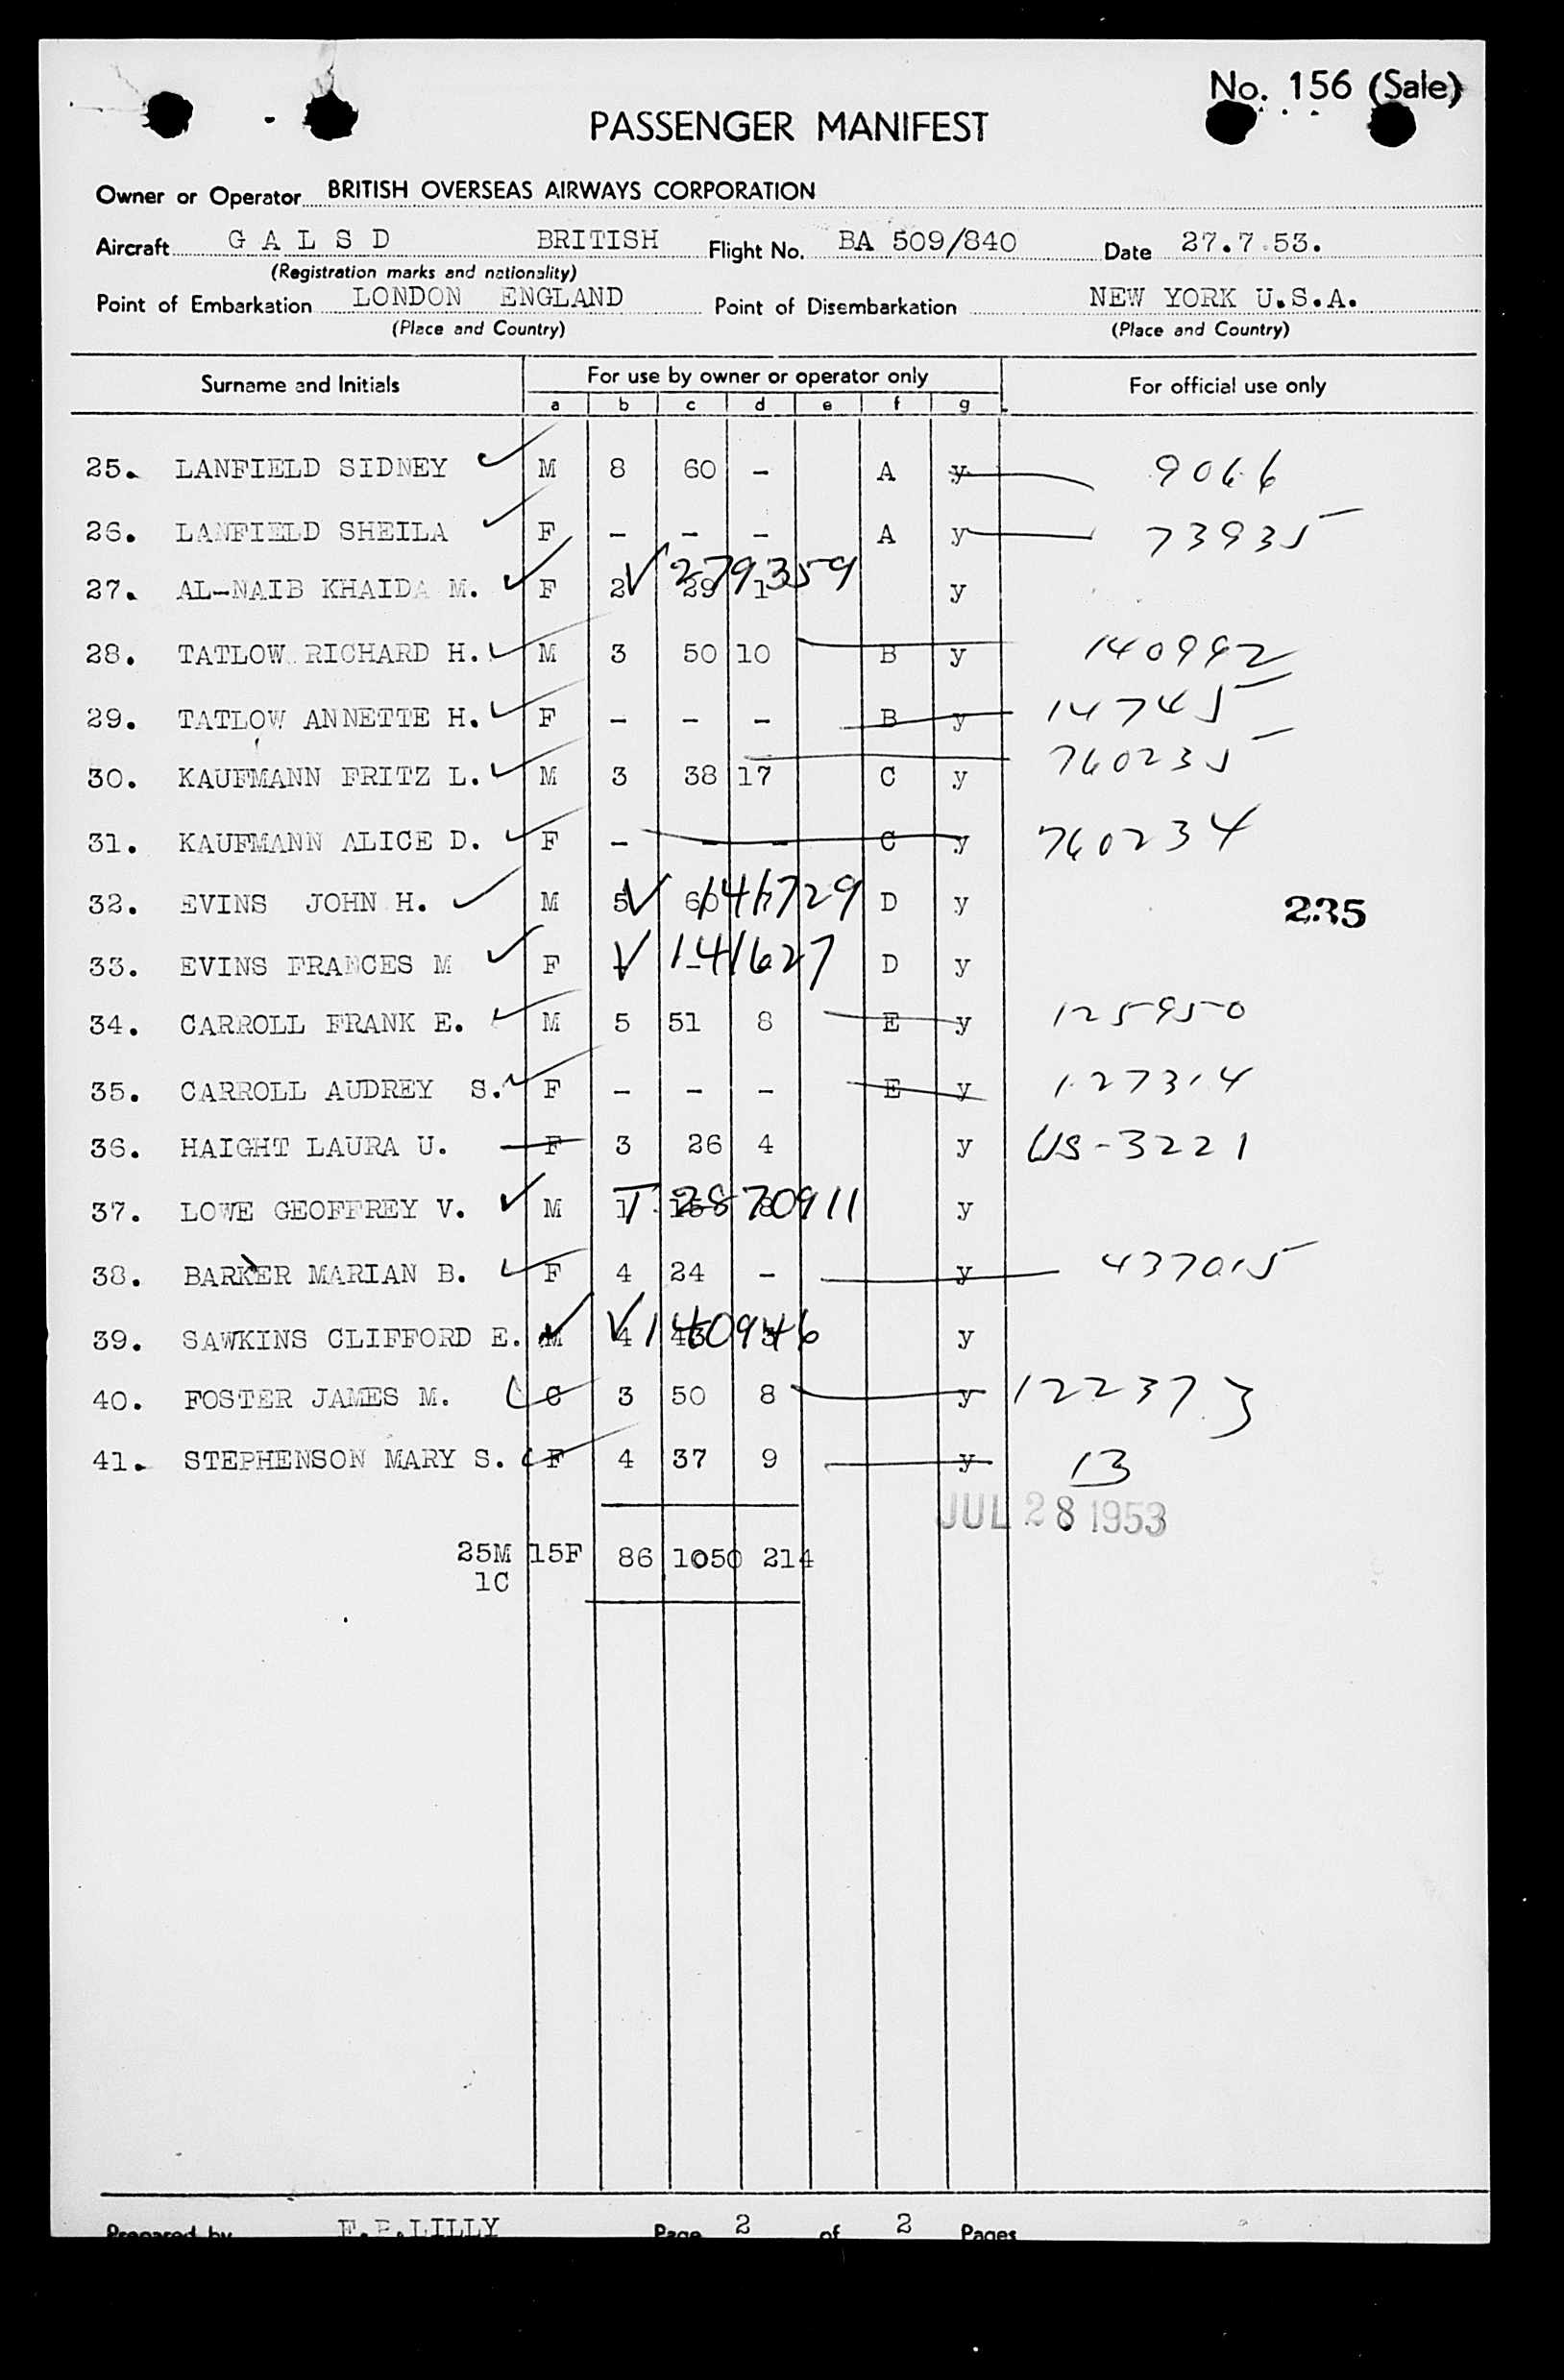 No. 156 (Sale)
PASSENGER MANIFEST
Owner or Operator BRITISH OVERSEAS AIRWAYS CORPORATION
Aircraft G A L S D BRITISH Flight No. BA 509/840 Date 27.7.53.
(Registration marks and nationality)
Point of Embarkation LONDON ENGLAND Point of Disembarkation NEW YORK U.S.A.
(Place and Country) (Place and Country)
Surname and Initials For use by owner or operator only For official use only
a b c d e f g
25. LANFIELD SIDNEY M 8 60 - A y 9066
26. LANFIELD SHEILA F - - - A y 73935
27. AL-NAIB KHAIDA M. F 2 29 1 y V 279359
28. TATLOW RICHARD H. M 3 50 10 B y 140992
29. TATLOW ANNETTE H. F - - - B y 14745
30. KAUFMANN FRITZ L. M 3 38 17 C y 760235
31. KAUFMANN ALICE D. F - - - C y 760234
32. EVINS JOHN H. M 5 60 D y V 141729
235
33. EVINS FRANCES M F - - D y V 141627
34. CARROLL FRANK E. M 5 51 8 E y 125950
35. CARROLL AUDREY S. F - - - E y 127314
36. HAIGHT LAURA U. F 3 26 4 y US-3221
37. LOWE GEOFFREY V. M 1 8 y T 2870911
38. BARKER MARIAN B. F 4 24 - y 437015
39. SAWKINS CLIFFORD E. M 4 43 3 y V 140946
40. FOSTER JAMES M. C 3 50 8 y 122373
41. STEPHENSON MARY S. F 4 37 9 y 13
JUL 28 1953
25M 15F 86 1050 214
1C
Prepared by LILLY Page 2 of 2 Pages